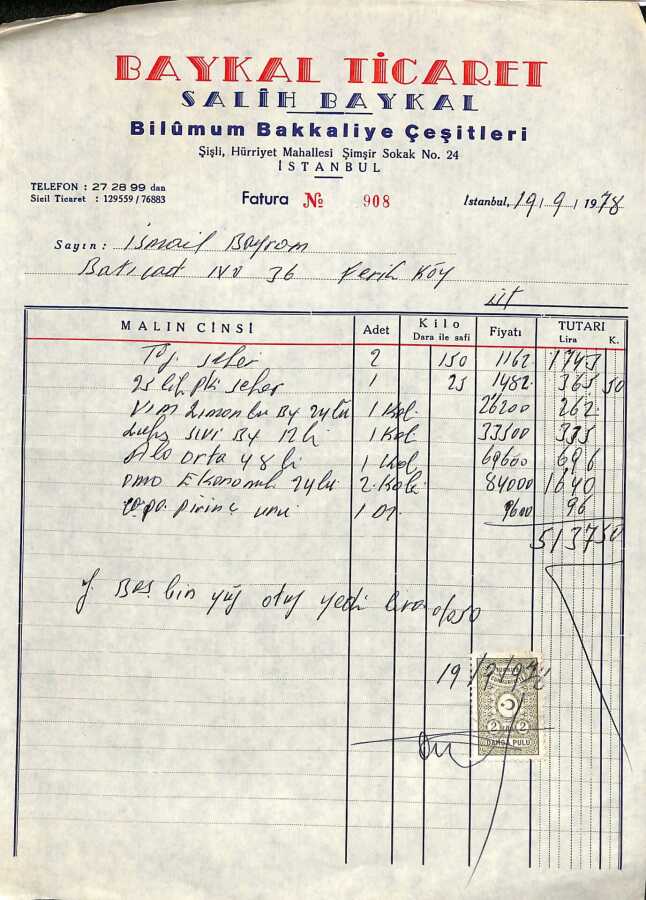 BAYKAL TİCARET
SALİH BAYKAL
Bilûmum Bakkaliye Çeşitleri
Şişli, Hürriyet Mahallesi Şimşir Sokak No. 24
İSTANBUL
TELEFON : 27 28 99 dan
Sicil Ticaret : 129559 / 76883
Fatura № 908
Istanbul, 19 / 9 / 1978
Sayın : İsmail Bayram
No 36 Ferik Köy
MALIN CİNSİ Adet Kilo Dara ile safi Fiyatı TUTARI Lira K.
Toz şeker 2 150 1162 1743
şeker 1 25 1482 365 50
Vim Limonlu 24 lü 1 Kol. 26200 262
sıvı 12 li 1 Kol 33500 335
orta 48 li 1 Kol 69600 696
Omo Ekonomik 24 lü 2 Koli 84000 1640
pirinç unu 1 9600 96
5137 50
Y. Beş bin yüz otuz yedi lira
19 / 9 /
2 2
DAMGA PULU